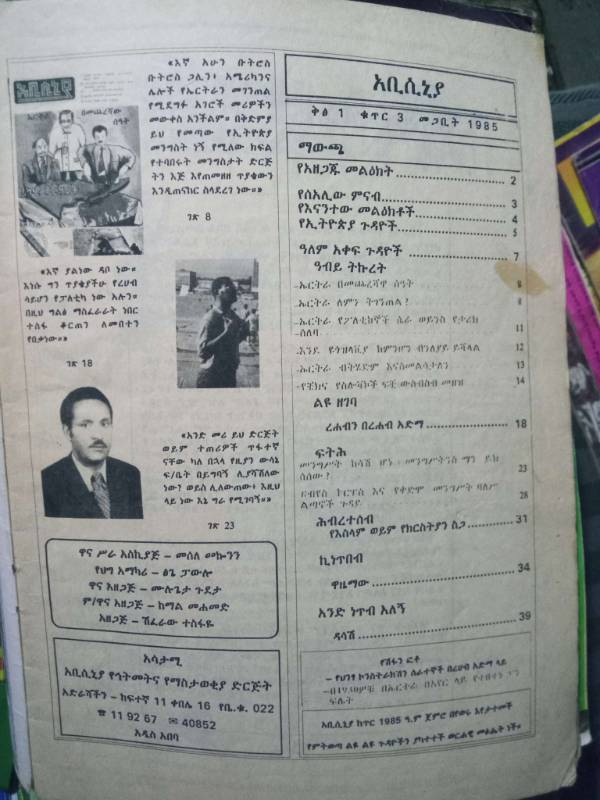 አቢሲኒያ
ኤርትራ
በመጨረሻው
ሰዓት
«እኛ አሁን ቡትሮስ
ቡትሮስ ጋሊን፣ አሜሪካንና
ሌሎች የኤርትራን መገንጠል
የሚደግፉ አገሮች መሪዎችን
መውቀስ አንችልም። በቅድሚያ
ይህ የመጣው የኢትዮጵያ
መንግስት ነኝ የሚለው ክፍል
የተባበሩት መንግስታት ድርጅ
ትን እጅ እየጠመዘዘ ጥያቄውን
እንዲጠናከር ስላደረገ ነው።»
ገጽ 8
«እኛ ያልነው ዳቦ ነው።
እነሱ ግን ጥያቄያችሁ የረሀብ
ሳይሆን የፓለቲካ ነው አሉን።
በዚህ ግልፅ ማስፈራራት ነበር
ተስፋ ቆርጠን ለመበተን
የበቃነው።»
ገጽ 18
«አንድ መሪ ይህ ድርጅት
ወይም ተጠሪዎች ጥፋተኛ
ናቸው ካለ በኋላ የዚያን ውሳኔ
ፍ/ቤት ይግባኝ ሊያሻሽለው
ነው? ወይስ ሊለውጠው፣ እዚህ
ላይ ነው እኔ ግራ የሚገባኝ።»
ገጽ 23
ዋና ሥራ አስኪያጅ – መሰለ መኩንን
የህግ አማካሪ – ፅጌ ፓውሎ
ዋና አዘጋጅ – ሙሉጌታ ጉደታ
ም/ዋና አዘጋጅ – ከማል መሐመድ
አዘጋጅ – ሽፈራው ተስፋዬ
አሳታሚ
አቢሲኒያ የኅትመትና የማስታወቂያ ድርጅት
አድራሻችን – ከፍተኛ 11 ቀበሌ 16 የቤ.ቁ. 022
☎ 11 92 67 ✉ 40852
አዲስ አበባ
አቢሲኒያ
ቅፅ 1 ቁጥር 3 መጋቢት 1985
ማውጫ
የአዘጋጁ መልዕክት 2
የሰአሊው ምናብ 3
የእናንተው መልዕክቶች 4
የኢትዮጵያ ጉዳዮች 5
ዓለም አቀፍ ጉዳዮች 7
ዓብይ ትኩረት
–ኤርትራ በመጨረሻዋ ሰዓት 8
–ኤርትራ ለምን ትገነጠል? 8
–ኤርትራ የፖለቲከኞች ሴራ ወይንስ የታሪክ
ሰለባ 11
–እንደ ዩጎዝላቪያ ከምንሆን ብንለያይ ይሻላል 12
–ኤርትራ ብትሄድም እናስመልሳታለን 13
–የቼክና የስሎቫኮች ፍቺ ውስብስብ መዘዝ 14
ልዩ ዘገባ
ረሐብን በረሐብ አድማ 18
ፍትሕ
መንግሥት ከሳሽ ሆነ፣ መንግሥትንስ ማን ይክ
ሰሰው? 23
ሀብየስ ኮርፐስ እና የቀድሞ መንግሥት ባለሥ
ልጣኖች ጉዳይ 28
ሕብረተሰብ
የእስላም ወይም የክርስትያን ስጋ 31
ኪነጥበብ
ዋዜማው 34
አንድ ነጥብ አለኝ
ዳሳሽ 39
የሽፋን ፎቶ
– የህንፃ ኮንስትራክሽን ሰራተኞች በረሀብ አድማ ላይ
አቢሲኒያ ከጥር 1985 ዓ.ም ጀምሮ በየወሩ እየታተመች
የምትወጣ ልዩ ልዩ ጉዳዮችን ያካተተች ወርሐዊ መፅሔት ነች።